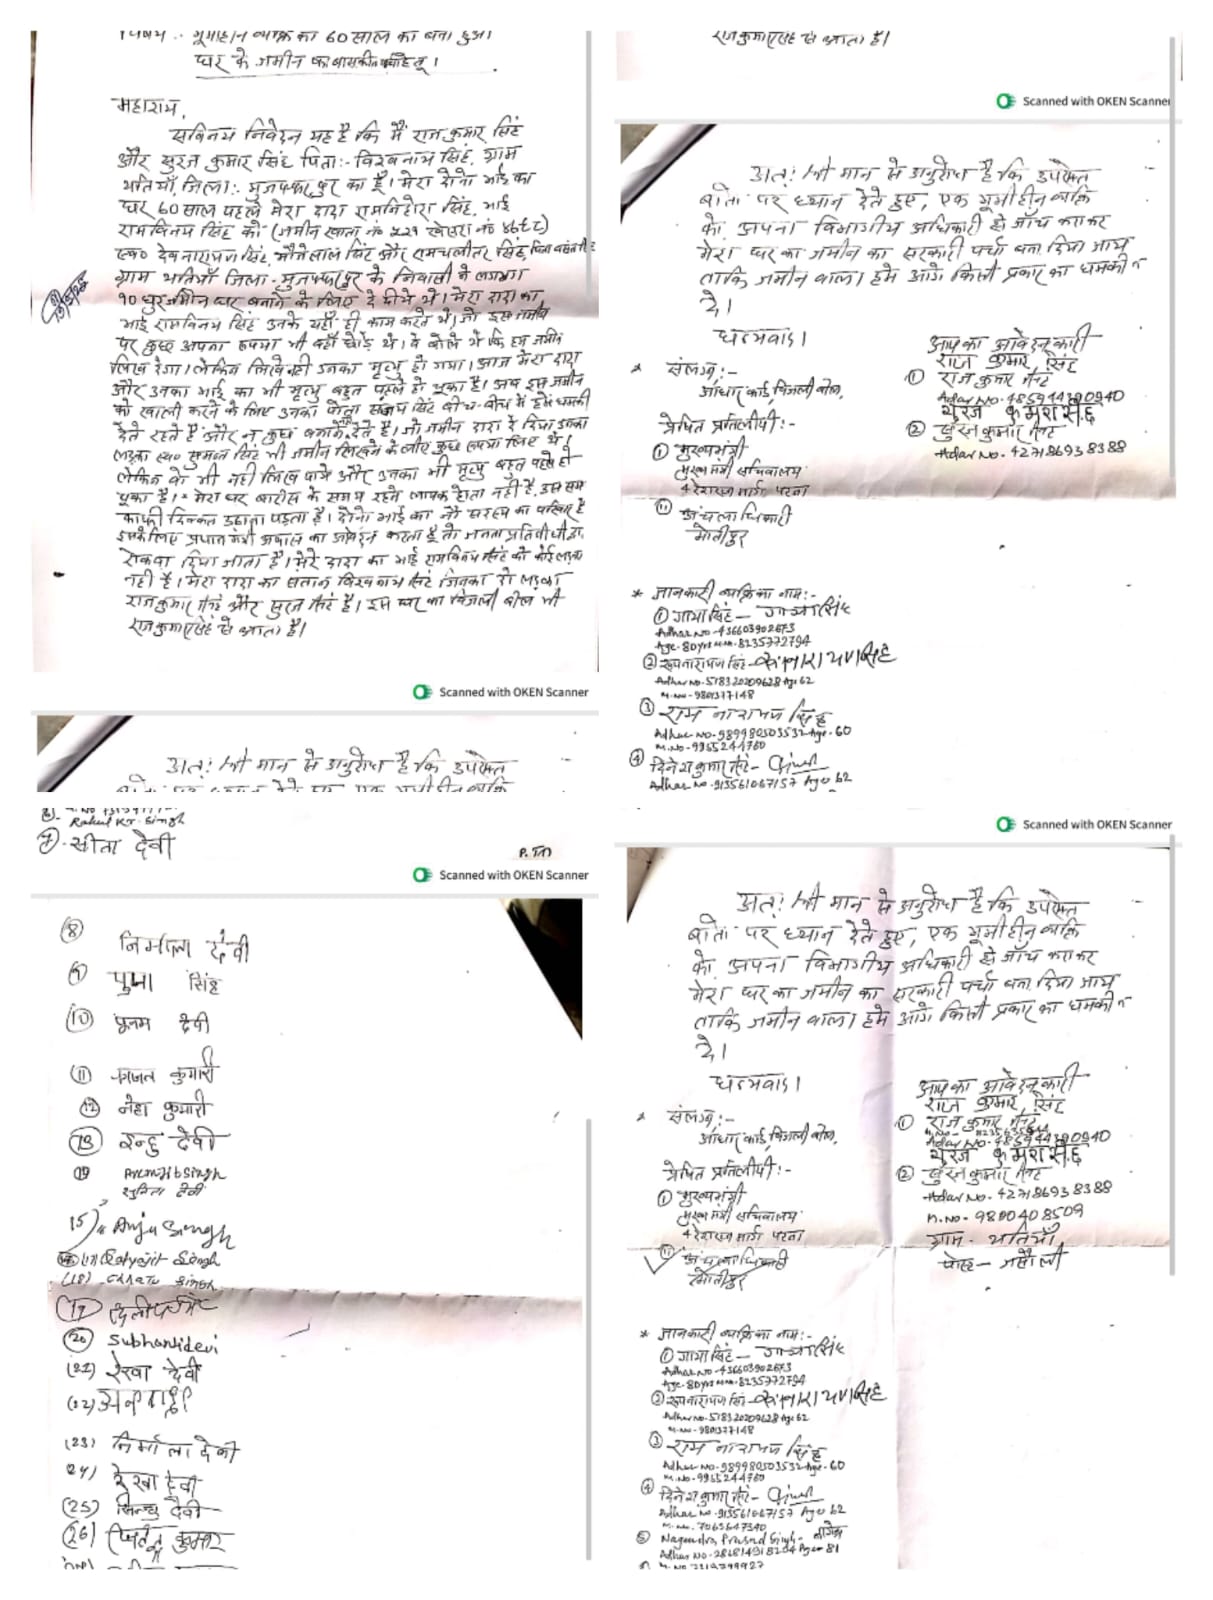 विषय :- भूमीहीन व्यक्ति का 60 साल का बना हुआ
घर के जमीन का बासकीत पर्चा हेतू।
महाशय,
सविनय निवेदन यह है कि मैं राज कुमार सिंह
और सुरज कुमार सिंह पिता:- विश्वनाथ सिंह, ग्राम
भतियाँ, जिला:- मुजफ्फरपुर का हूँ। मेरा दोनो भाई का
घर 60 साल पहले मेरा दादा रामनिहोरा सिंह, भाई
रामविनय सिंह को (जमीन खाता नं
स्व० देवनारायण सिंह, मौजेलाल सिंह और रामचलीतर सिंह,
ग्राम भतियाँ जिला- मुजफ्फरपुर के निवासी ने लगभग
१० धुर जमीन घर बनाने के लिए दे दीये थे। मेरा दादा का
भाई रामविनय सिंह उनके यहाँ ही काम करते थे, जो इस जमीन
पर कुछ अपना रुपया भी वहाँ छोड़े थे। वे बोले थे कि हम जमीन
लिख देगा। लेकिन लिखे नही उनका मृत्यु हो गया। आज मेरा दादा
और उनका भाई का भी मृत्यु बहुत पहले हो चूका है। अब इस जमीन
को खाली करने के लिए उनका पोता संजय सिंह बीच-बीच में हमे धमकी
देते रहते हैं और न कुछ बनाने देते है। जो जमीन दादा दे दिया उनका
लड़का स्व० सुमन सिंह भी जमीन लिखने के लीए कुछ रुपया लिए थे।
लेकिन वे भी नही लिख पाये और उनका भी मृत्यु बहुत पहले हो
चूका है। मेरा घर बारीस के समय रहने लायक होता नही है, उस समय
काफी दिक्कत उठाना पड़ता है। दोनो भाई का नौ सदस्य का परिवार है
इसके लिए प्रधान मंत्री आवास का आवेदन करता हूँ तो जनता प्रतिनीधी द्वारा
रोकवा दिया जाता है। मेरे दादा का भाई रामविनय सिंह को कोई लड़का
नही है। मेरा दादा का संतान विश्वनाथ सिंह जिनका दो लड़का
राजकुमार सिंह और सुरज सिंह है। इस घर का बिजली बील भी
राजकुमार सिंह से आता है।
Scanned with OKEN Scanner
अत: श्री मान से अनुरोध है कि उपरोक्त
बातो पर ध्यान देते हुए, एक भूमीहीन व्यक्ति
राजकुमार सिंह से आता है।
Scanned with OKEN Scanner
अत: श्री मान से अनुरोध है कि उपरोक्त
बातो पर ध्यान देते हुए, एक भूमीहीन व्यक्ति
को अपना विभागीय अधिकारी से जाँच कराकर
मेरा घर का जमीन का सरकारी पर्चा बना दिया जाय
ताकि जमीन वाला हमे आगे किसी प्रकार का धमकी न
दे।
धन्यवाद।
आपका आवेदनकारी
राज कुमार सिंह
① राज कुमार सिंह
Adhar No. 485944390940
② सुरज कुमार सिंह
Adhar No. 427186938388
* संलग्न:-
आधार कार्ड, बिजली बील,
प्रेषित प्रतिलीपी:-
① मुख्यमंत्री
मुख्य मंत्री सचिवालय
4 देशरत्न मार्ग पटना
⑪ अंचलाधिकारी
मोतीपुर
* जानकारी व्यक्ति का नाम:-
① गाया सिंह -
Adhar No-436603902673
Age-80yrs M.No-8235772794
② रूपनारायण सिंह-
Adhar No-518320209628 Age 62
M.No-9801377148
③ राम नारायण सिंह
Adhar No-989980503532 Age-60
M.No-9955244760
④ दिनेश कुमार सिंह-
Adhar No-913561067157 Age 62
Rahul Kr. Singh
⑦ सीता देवी
P.T.O
Scanned with OKEN Scanner
⑧ निर्मला देवी
⑨ पुजा सिंह
⑩ पुनम देवी
⑪ काजल कुमारी
⑫ नेहा कुमारी
⑬ इन्दु देवी
सुनिता देवी
15) Anju Singh
Satyajit Singh
(18) Chhatu Singh
⑳ Subhantidevi
(21) रेखा देवी
(23) निर्माला देवी
24) रेखा देवी
(25) सिन्धु देवी
(26) जितेन्द्र कुमार
Scanned with OKEN Scanner
अत: श्री मान से अनुरोध है कि उपरोक्त
बातो पर ध्यान देते हुए, एक भूमीहीन व्यक्ति
को अपना विभागीय अधिकारी से जाँच कराकर
मेरा घर का जमीन का सरकारी पर्चा बना दिया जाय
ताकि जमीन वाला हमे आगे किसी प्रकार का धमकी न
दे।
धन्यवाद।
आपका आवेदनकारी
राज कुमार सिंह
① राज कुमार सिंह
Adhar No. 485944390940
② सुरज कुमार सिंह
Adhar No. 427186938388
M.No- 9890408509
ग्राम- भतियाँ
* संलग्न:-
आधार कार्ड, बिजली बील,
प्रेषित प्रतिलीपी:-
① मुख्यमंत्री
मुख्य मंत्री सचिवालय
4 देशरत्न मार्ग पटना
⑪ अंचलाधिकारी
मोतीपुर
* जानकारी व्यक्ति का नाम:-
① गाया सिंह -
Adhar No-436603902673
Age-80yrs M.No-8235772794
② रूपनारायण सिंह-
Adhar No-518320209628 Age 62
M.No-9801377148
③ राम नारायण सिंह
Adhar No-989980503532 Age-60
M.No-9955244760
④ दिनेश कुमार सिंह-
Adhar No-913561067157 Age 62
M.No. 7065647340
⑤ Nagendra Prasad Singh-
Adhar No-286814918204 Age-81